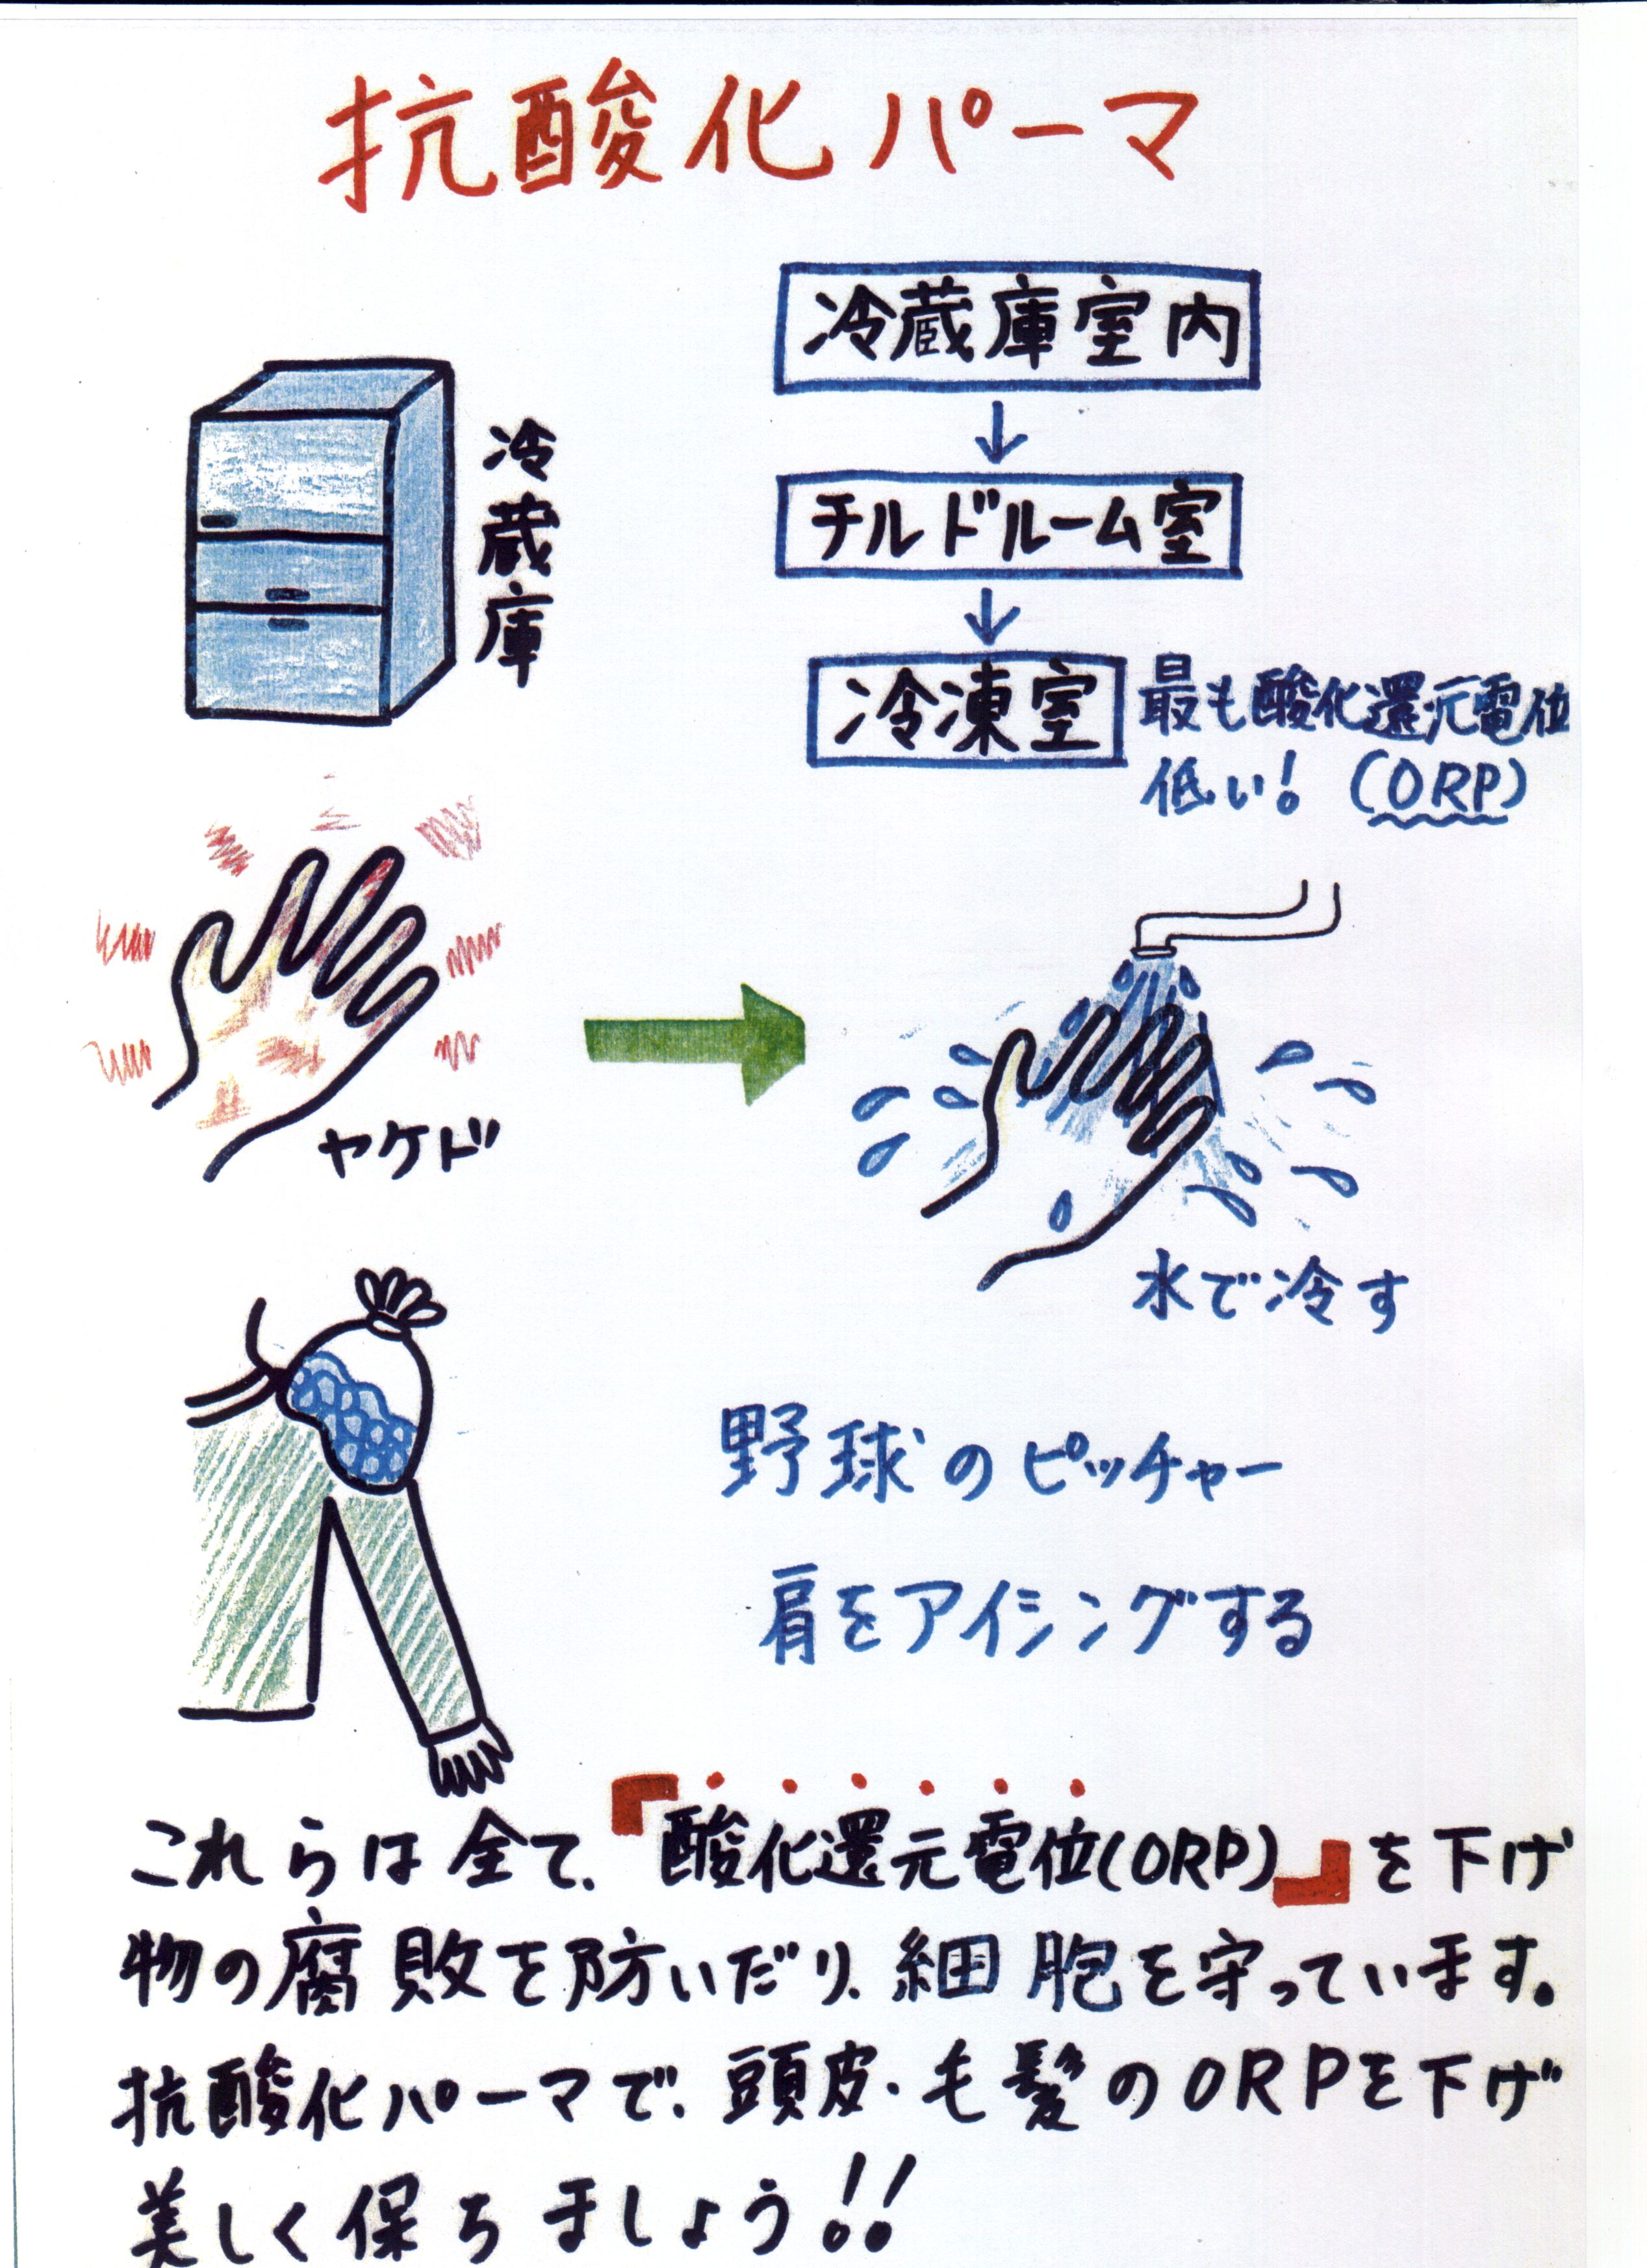 抗酸化パーマ
冷蔵庫
冷蔵庫室内
↓
チルドルーム室
↓
冷凍室
最も酸化還元電位
低い!(ORP)
ヤケド
水で冷す
野球のピッチャー
肩をアイシングする
これらは全て、『酸化還元電位(ORP)』を下げ
物の腐敗を防いだり、細胞を守っています。
抗酸化パーマで、頭皮・毛髪のORPを下げ
美しく保ちましょう!!